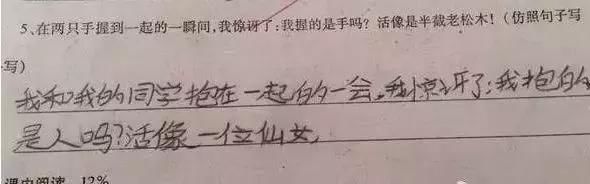 5、在两只手握到一起的一瞬间,我惊讶了:我握的是手吗?活像是半截老松木!(仿照句子写
写)
我和我的同学抱在一起的一会,我惊讶了:我抱的
是人吗?活像一位仙女,
课内阅读 12%